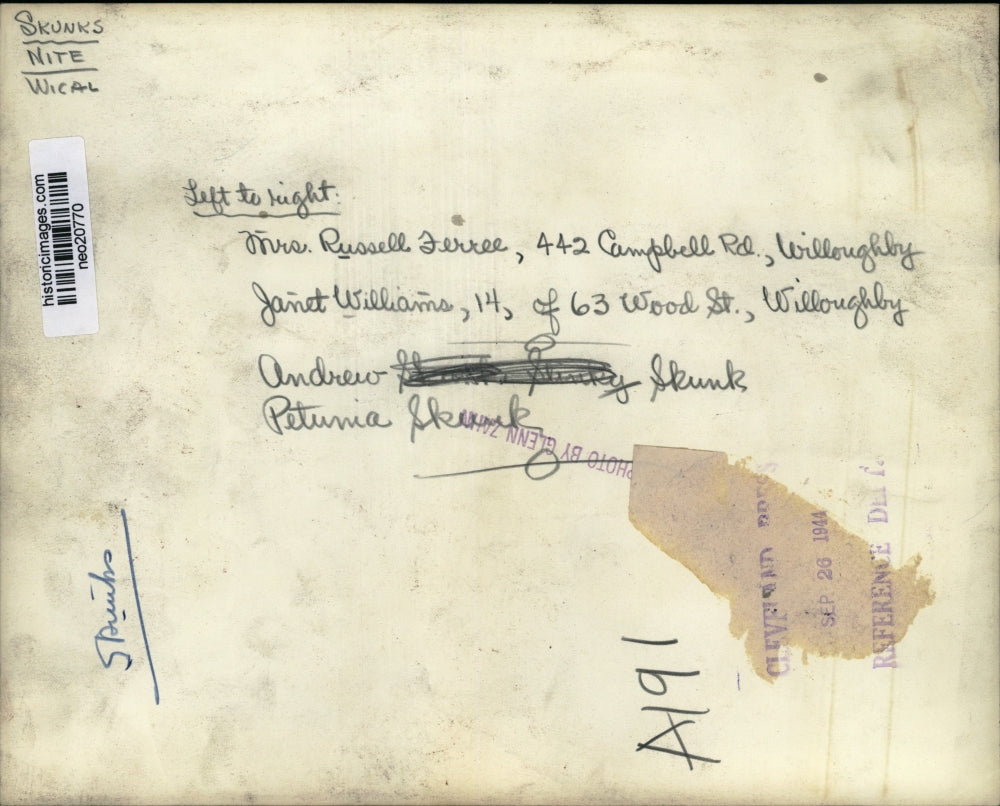 SKUNKS
NITE
WICAL
historicimages.com
neo20770
Left to right:
Mrs. Russell Ferree, 442 Campbell Rd., Willoughby
Janet Williams, 14, of 63 Wood St., Willoughby
Andrew Skunk
Petunia Skunk
PHOTO BY GLENN ZAHN
CLEVELAND PRESS
SEP 26 1944
REFERENCE DEPT.
Skunks
A191